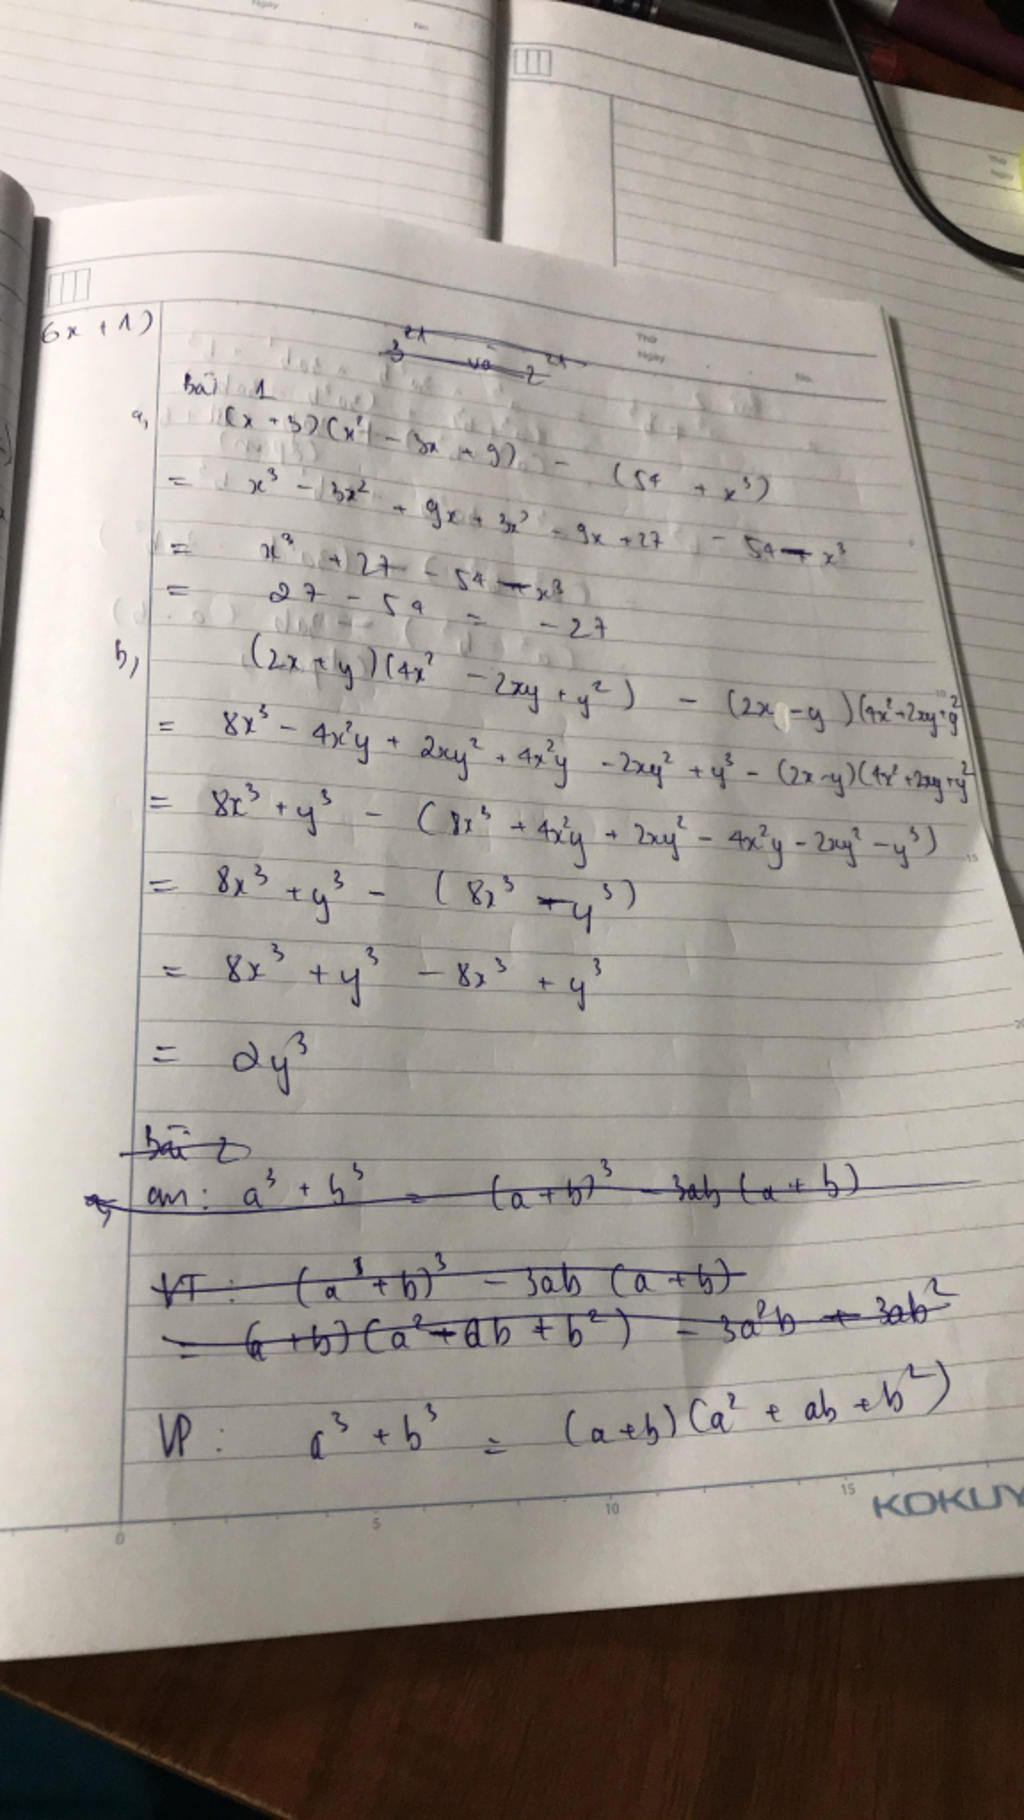 6x + 1)
21 21
3 và 2
Bài 1
a, (x + 3)(x² - 3x + 9) - (54 + x³)
= x³ - 3x² + 9x + 3x² - 9x + 27 - 54 - x³
= x³ + 27 - 54 - x³
= 27 - 54 = -27
b, (2x + y)(4x² - 2xy + y²) - (2x - y)(4x² + 2xy + y²
= 8x³ - 4x²y + 2xy² + 4x²y - 2xy² + y³ - (2x - y)(4x² + 2xy + y²
= 8x³ + y³ - (8x³ + 4x²y + 2xy² - 4x²y - 2xy² - y³)
= 8x³ + y³ - (8x³ - y³)
= 8x³ + y³ - 8x³ + y³
= 2y³
Bài 2
a, cm: a³ + b³ = (a + b)³ - 3ab (a + b)
VT: (a³ + b)³ - 3ab (a + b)
= (a + b)(a² + ab + b²) - 3a²b + 3ab²
VP: a³ + b³ = (a+b)(a² + ab + b²)
0 5 10 15 KOKUY